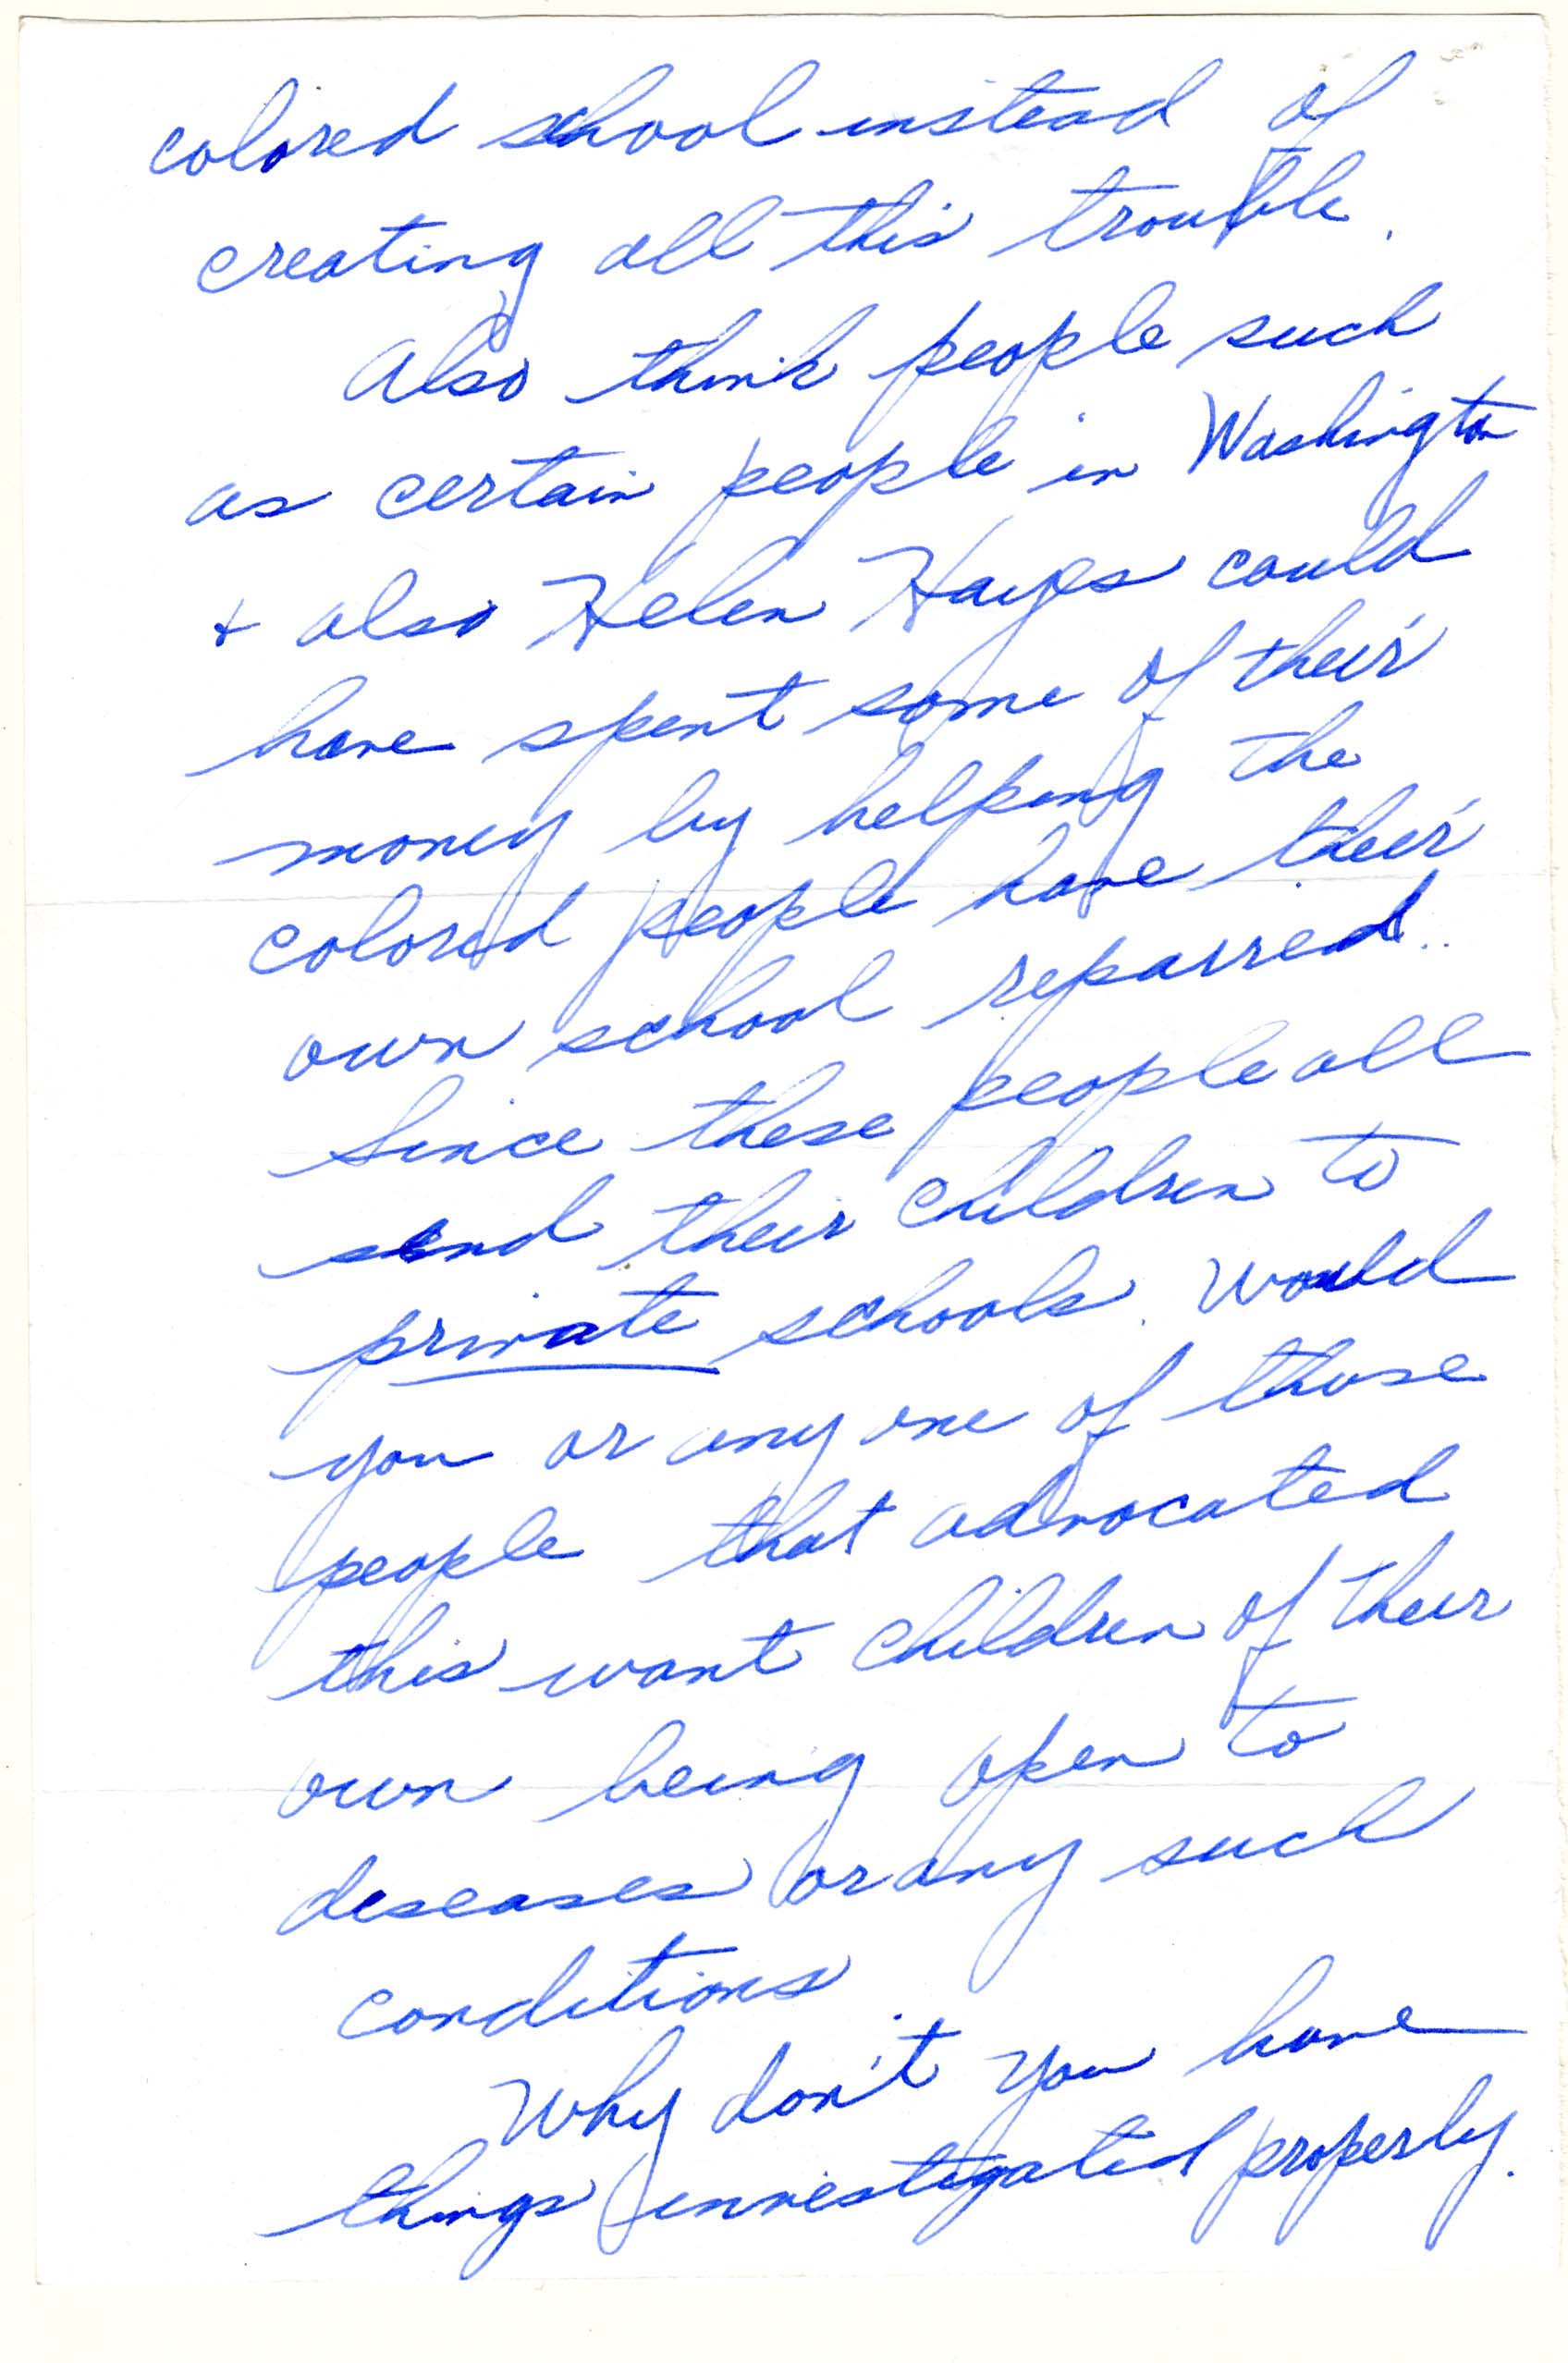 colored school instead of
creating all this trouble.
Also think people such
as certain people in Washington
+ also Helen Hayes could
have spent some of their
money by helping the
colored people have their
own school repaired..
Since these people all
send their children to
private schools. Would
you or any one of those
people that advocated
this want children of their
own being open to
deseases or any such
conditions.
Why don't you have
things investigated properly.